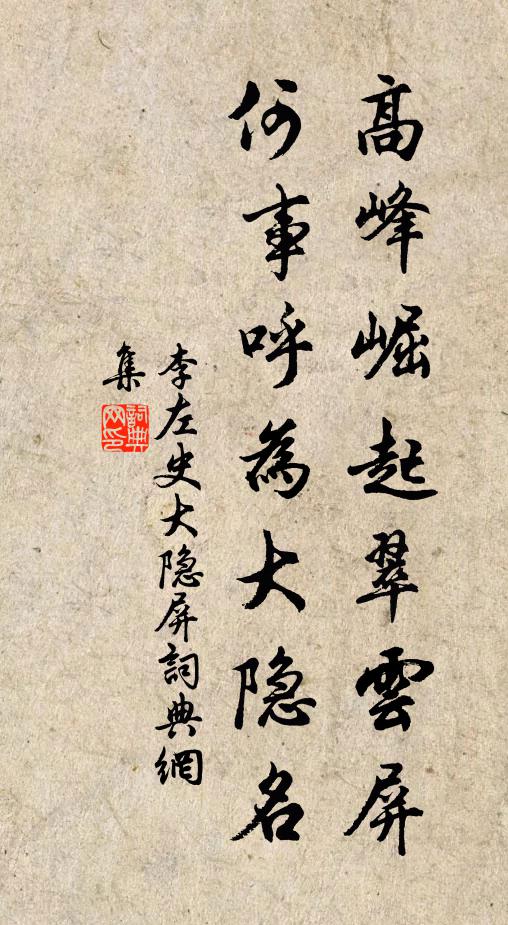 高峰崛起翠雲屏
何事呼為大隐名
李左史大隐屏詞典網
集
詞典
网印